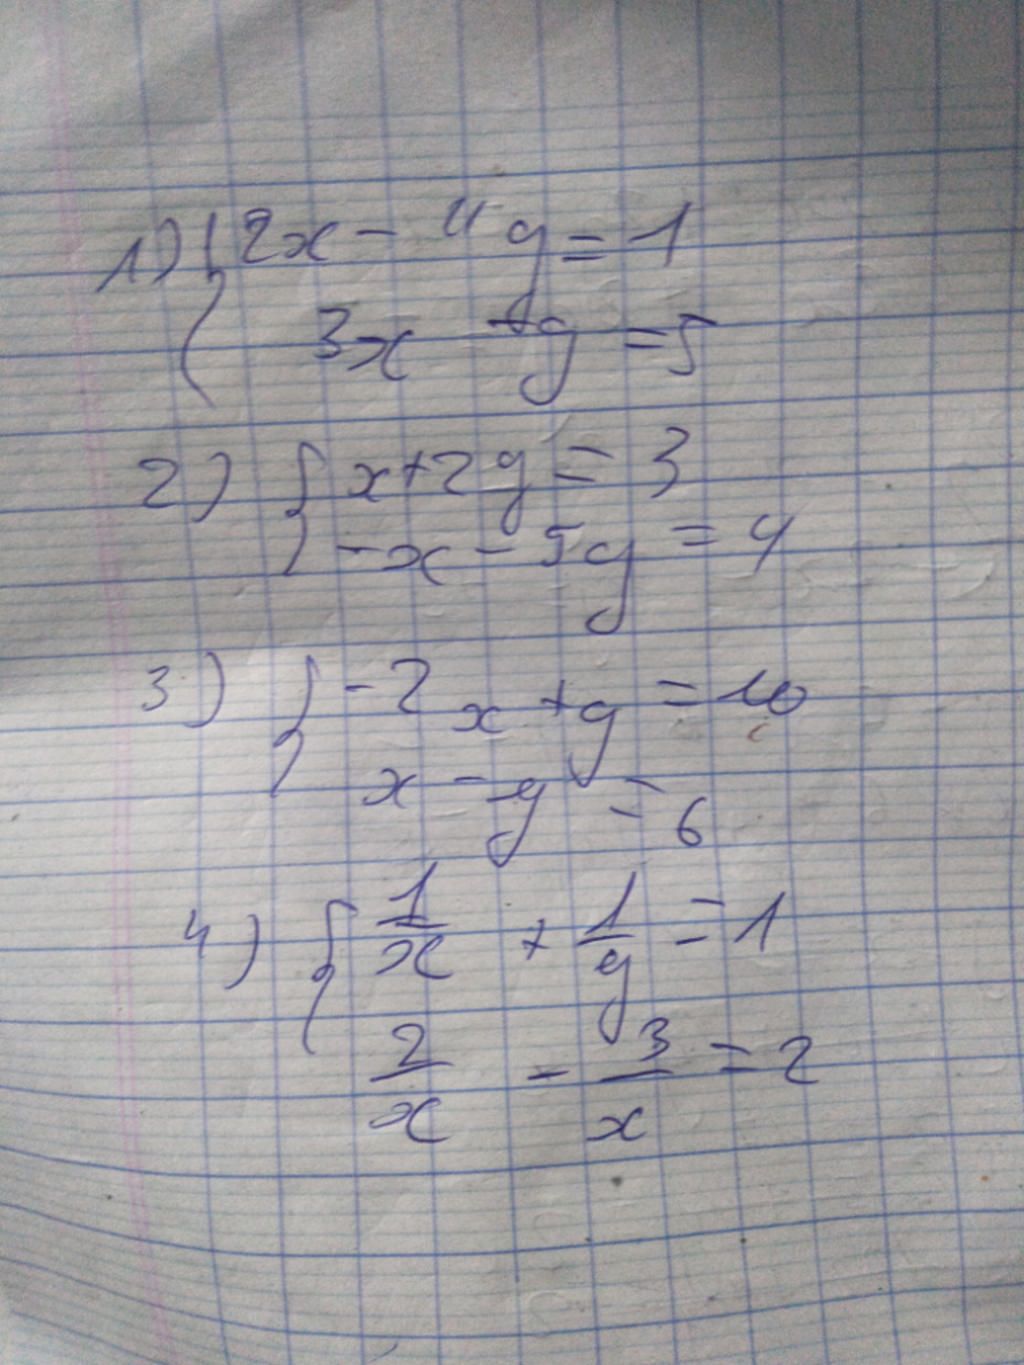 1) { 2x - 4y = 1
3x + y = 5
2) { x + 2y = 3
-x - 5y = 4
3) { -2x + y = 10
x - y = 6
4) { 1/x + 1/y = 1
2/x - 3/x = 2